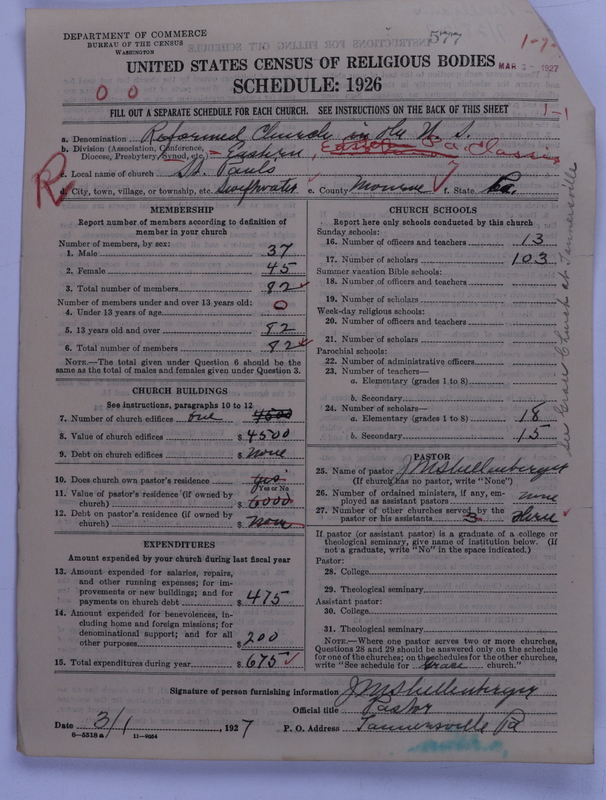 577
1-7-
DEPARTMENT OF COMMERCE
BUREAU OF THE CENSUS
WASHINGTON
UNITED STATES CENSUS OF RELIGIOUS BODIES
MAR 2 - 1927
SCHEDULE: 1926
0 0
FILL OUT A SEPARATE SCHEDULE FOR EACH CHURCH. SEE INSTRUCTIONS ON THE BACK OF THIS SHEET
1-1
a. Denomination Reformed Church in the U. S.
b. Division (Association, Conference, Diocese, Presbytery, Synod, etc.) Eastern, Pa. Classis
R
c. Local name of church St. Pauls
d. City, town, village, or township, etc. Swiftwater e. County Monroe f. State Pa.
MEMBERSHIP
Report number of members according to definition of
member in your church
Number of members, by sex:
1. Male 37
2. Female 45
3. Total number of members 82
Number of members under and over 13 years old:
4. Under 13 years of age 0
5. 13 years old and over 82
6. Total number of members 82
NOTE.—The total given under Question 6 should be the
same as the total of males and females given under Question 3.
CHURCH BUILDINGS
See instructions, paragraphs 10 to 12
7. Number of church edifices one 4500
8. Value of church edifices $ 4500
9. Debt on church edifices $ none
10. Does church own pastor's residence yes
Yes or No
11. Value of pastor's residence (if owned by
church) $ 6000
12. Debt on pastor's residence (if owned by
church) $ none
EXPENDITURES
Amount expended by your church during last fiscal year
13. Amount expended for salaries, repairs,
and other running expenses; for im-
provements or new buildings; and for
payments on church debt $ 475
14. Amount expended for benevolences, in-
cluding home and foreign missions; for
denominational support; and for all
other purposes $ 200
15. Total expenditures during year $ 675
CHURCH SCHOOLS
Report here only schools conducted by this church
Sunday schools:
16. Number of officers and teachers 13
17. Number of scholars 103
Summer vacation Bible schools:
18. Number of officers and teachers
19. Number of scholars
Week-day religious schools:
20. Number of officers and teachers
21. Number of scholars
Parochial schools:
22. Number of administrative officers
23. Number of teachers—
a. Elementary (grades 1 to 8)
b. Secondary
24. Number of scholars—
a. Elementary (grades 1 to 8) 18
b. Secondary 15
PASTOR
25. Name of pastor J M Shellenberger
(If church has no pastor, write "None")
26. Number of ordained ministers, if any, em-
ployed as assistant pastors none
27. Number of other churches served by the
pastor or his assistants 3 three
If pastor (or assistant pastor) is a graduate of a college or
theological seminary, give name of institution below. (If
not a graduate, write "No" in the space indicated.)
Pastor:
28. College
29. Theological seminary
Assistant pastor:
30. College
31. Theological seminary
NOTE.—Where one pastor serves two or more churches,
Questions 28 and 29 should be answered only on the schedule
for one of the churches; on the schedules for the other churches,
write "See schedule for Grace church."
See Grace Church at Tannersville
Signature of person furnishing information J M Shellenberger
Official title Pastor
Date 3/1, 1927 P. O. Address Tannersville Pa
8-5518 a 11-9064